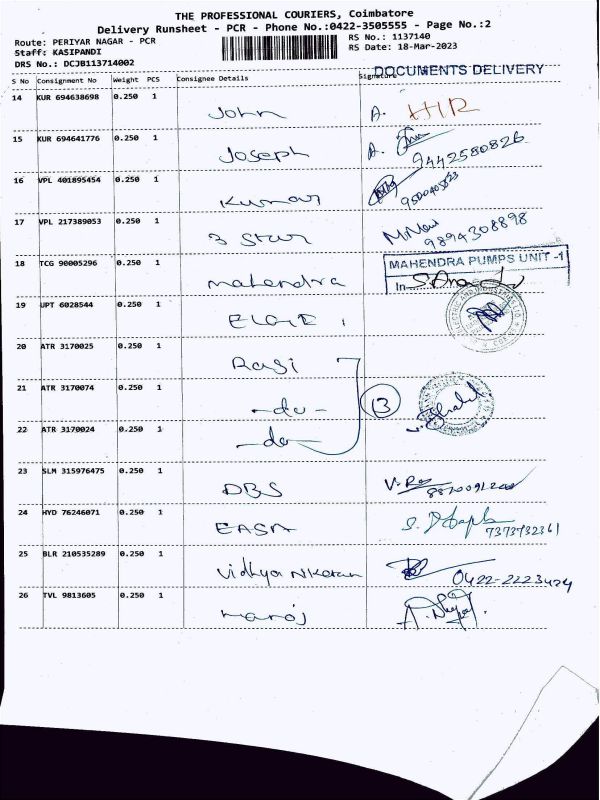 THE PROFESSIONAL COURIERS, Coimbatore
Delivery Runsheet - PCR - Phone No.:0422-3505555 - Page No.:2
Route: PERIYAR NAGAR - PCR RS No.: 1137140
Staff: KASIPANDI RS Date: 18-Mar-2023
DRS No.: DCJB113714002
DOCUMENTS DELIVERY
S No Consignment No Weight PCS Consignee Details Signature
14 KUR 694638698 0.250 1 John A. HR
15 KUR 694641776 0.250 1 Joseph A.
9442580826
16 VPL 401895454 0.250 1 Kumar
17 VPL 217389053 0.250 1 3 Star
9894308898
18 TCG 90005296 0.250 1 mahendra MAHENDRA PUMPS UNIT -1
In
19 UPT 6028544 0.250 1 ELGIE
20 ATR 3170025 0.250 1
21 ATR 3170074 0.250 1 -do- 3
22 ATR 3170024 0.250 1 -do-
23 SLM 315976475 0.250 1 DBS
24 HYD 76246071 0.250 1 EASA
7373732361
25 BLR 210535289 0.250 1 Vidhya Niketan
0422-2223424
26 TVL 9813605 0.250 1 manoj